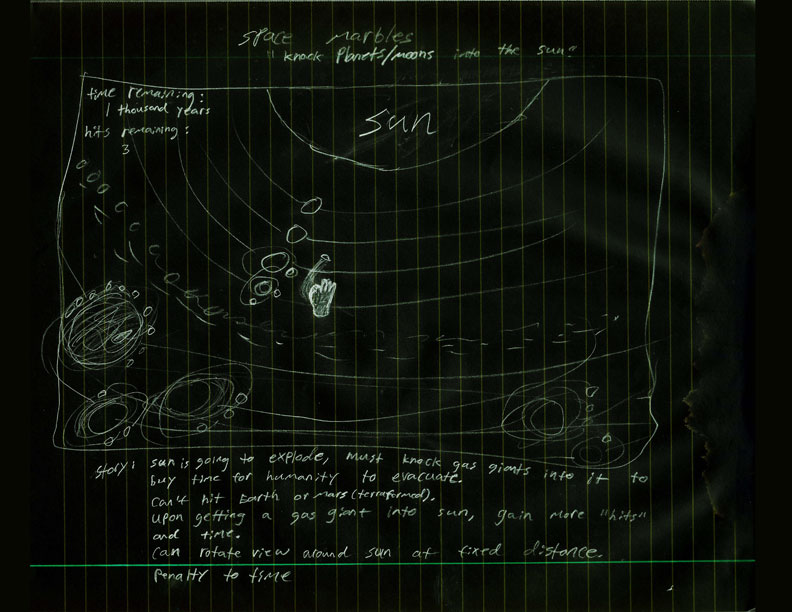 space marbles
"knock Planets/moons into the sun"
time remaining:
1 thousand years
hits remaining:
3
sun
story: sun is going to explode, must knock gas giants into it to
buy time for humanity to evacuate.
can't hit Earth or mars (terraformed).
upon getting a gas giant into sun, gain more "hits"
and time.
can rotate view around sun at fixed distance.
penalty to time